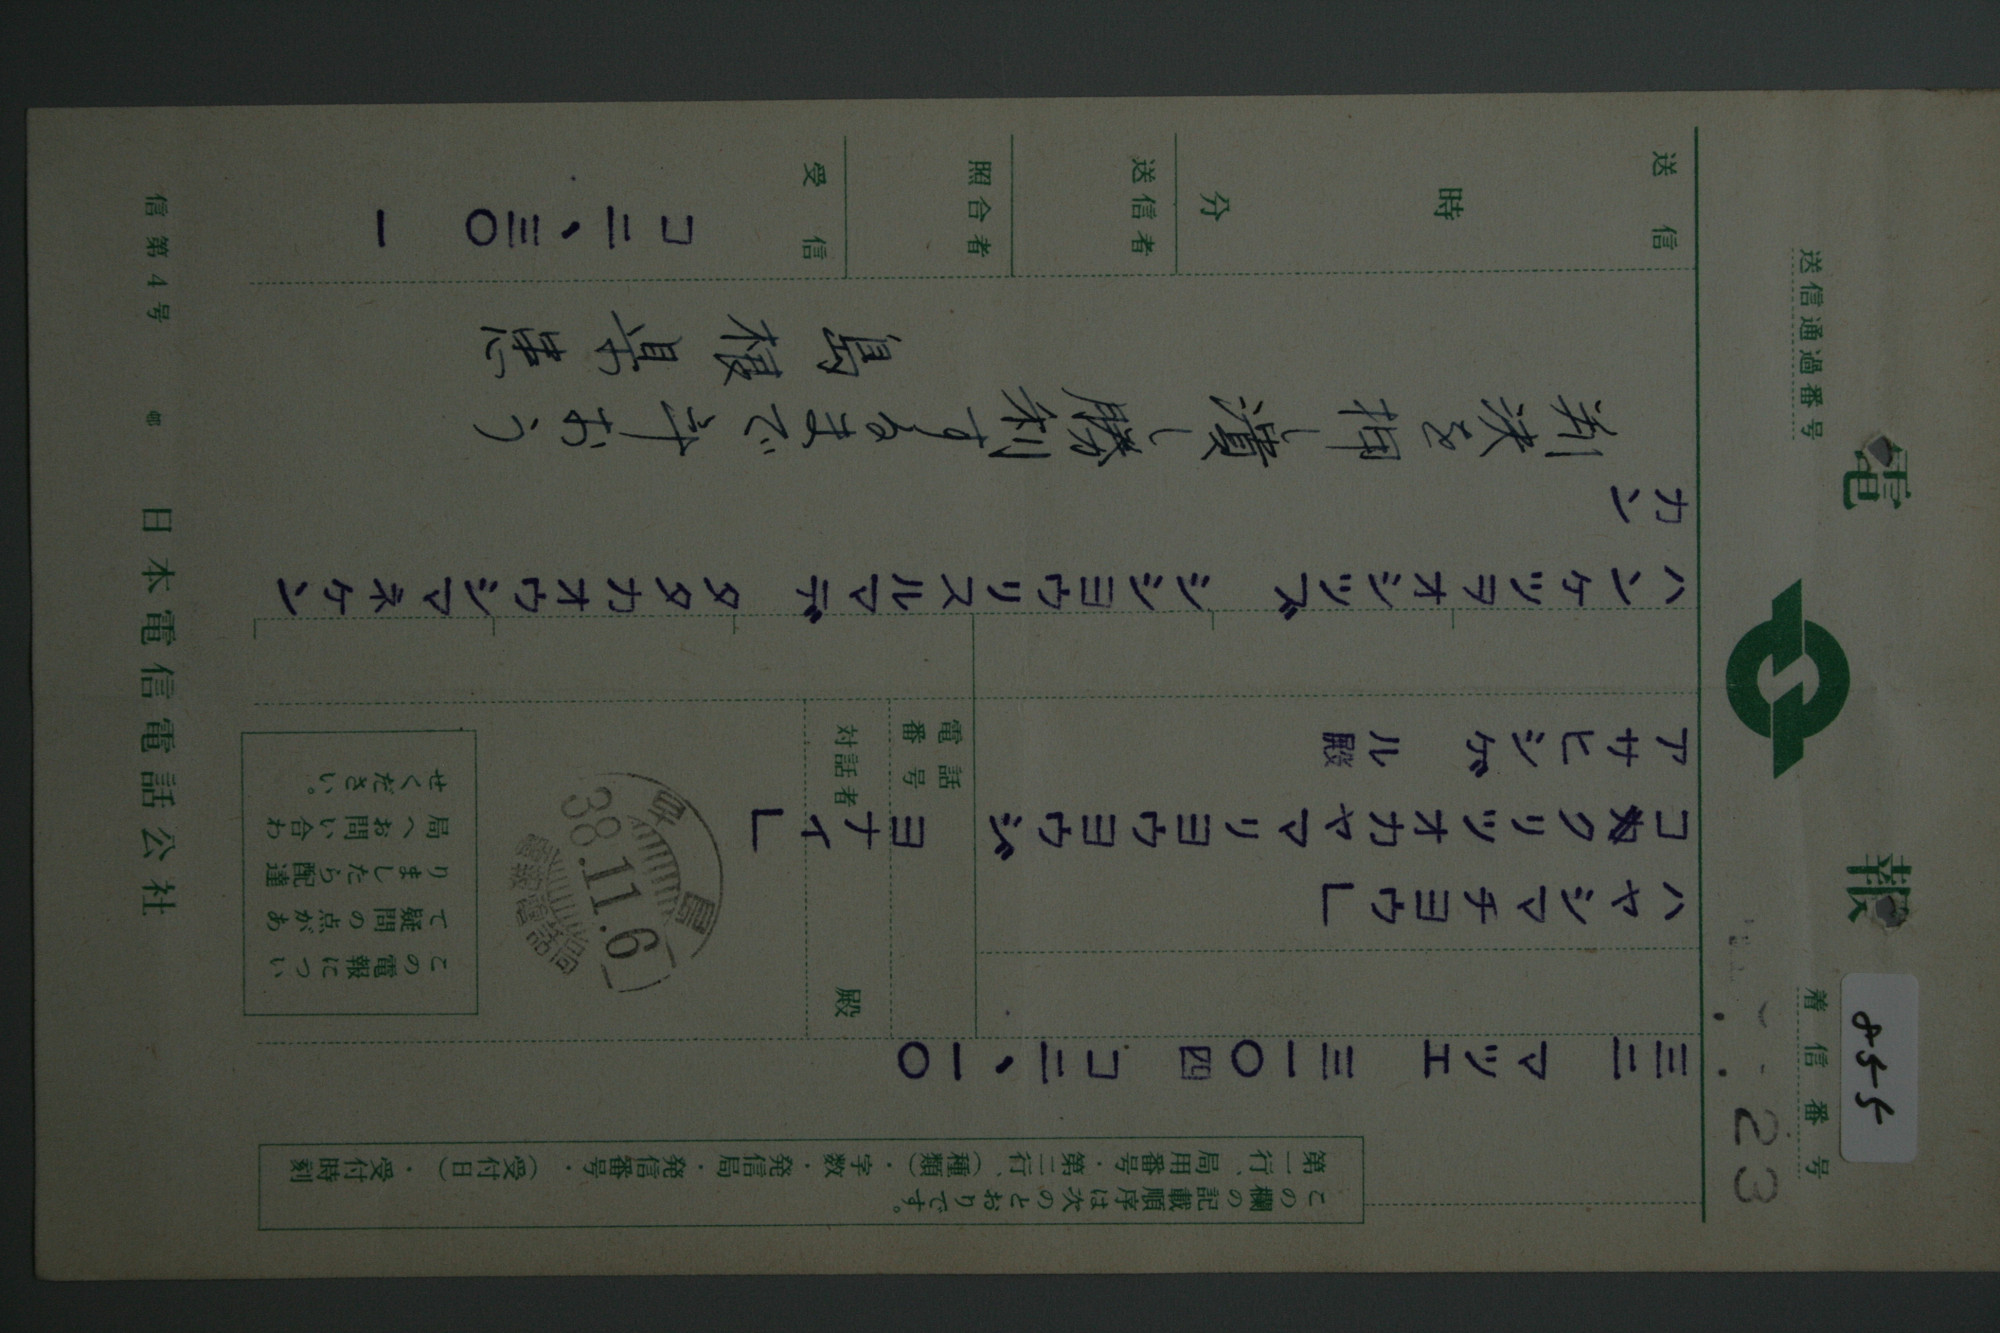 電報
着信番号
855
23
送信通過番号
この欄の記載順序は次のとおりです。
第一行、局用番号・第二行、(種類)・字数・発信局・発信番号・(受付日)・受付時刻
三二 マツエ 三一〇 四 コ二、一〇
ハヤシマチヨウ」
コクリツオカヤマリヨウヨウジヨナイ」
アサヒシゲル殿
電話番号
対話者 殿
早島
38.11.6
電報電話局
この電報につい
て疑問の点があ
りましたら配達
局へお問い合わ
せください。
ハンケツヲオシツブシシヨウリスルマデタタカオウシマネケン
カン
判決を押し潰し勝利するまで斗おう
島根県患
送信
時
分
送信者
照合者
受信
コ二、三〇 一
信第4号
日本電信電話公社